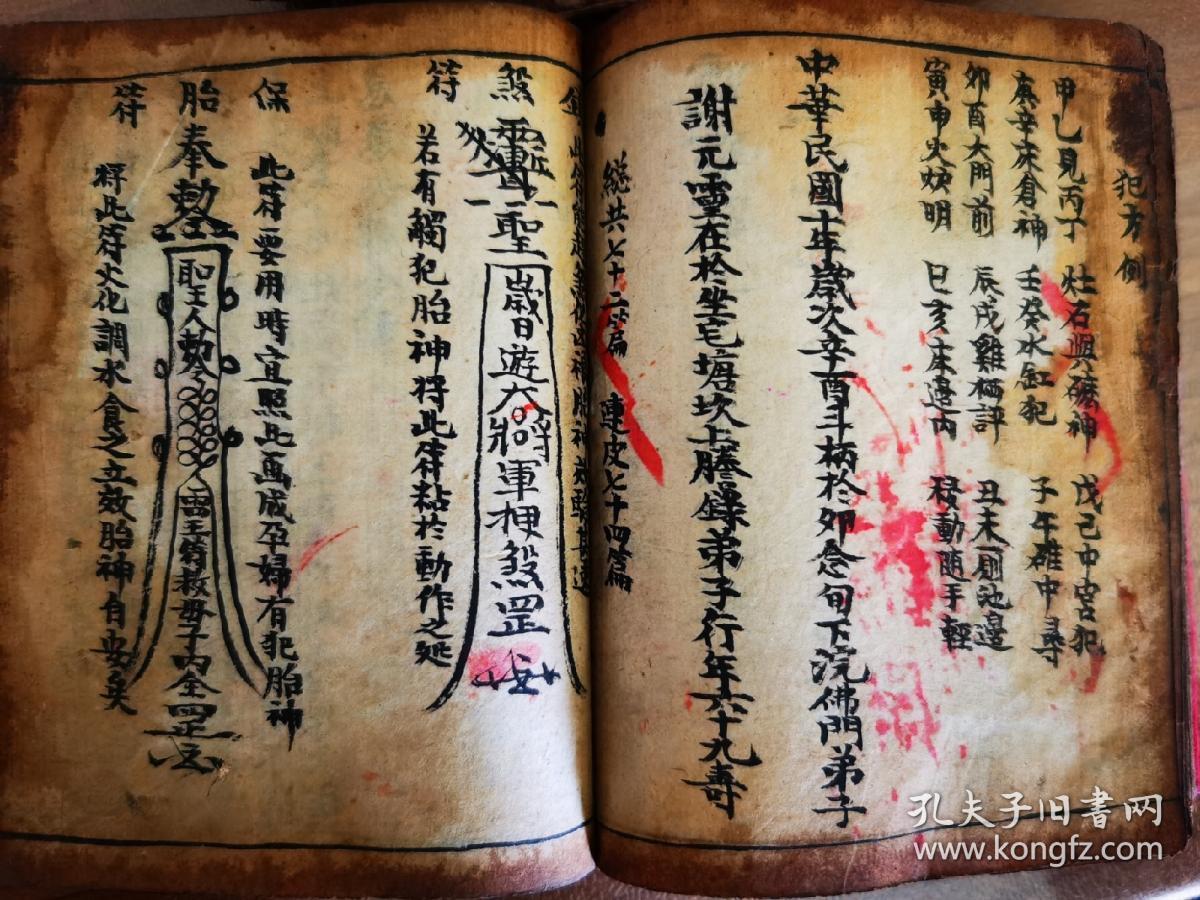 犯方例
甲乙見丙丁 灶石興磨神 戊己中宮犯
庚辛床倉神 壬癸水缸犯 子午碓中尋
卯酉大門前 辰戌雞栖評 丑未厠池邊
寅申火炉明 巳亥床邊內 移動随手輕
中華民國十年歲次辛酉斗柄於卯念旬下浣佛門弟子
謝元靈在於坐宅塘坎上謄錄弟子行年六十九壽
緫共七十二篇 連皮七十四篇
煞
符
聖
歲日遊大將軍押煞罡
若有觸犯胎神将此符粘於動作之処
保
胎
符
此符要用時宜照此画成孕婦有犯胎神
奉勅
聖人勅令
将此符火化調水食之立效胎神自安矣
孔夫子旧书网
www.kongfz.com